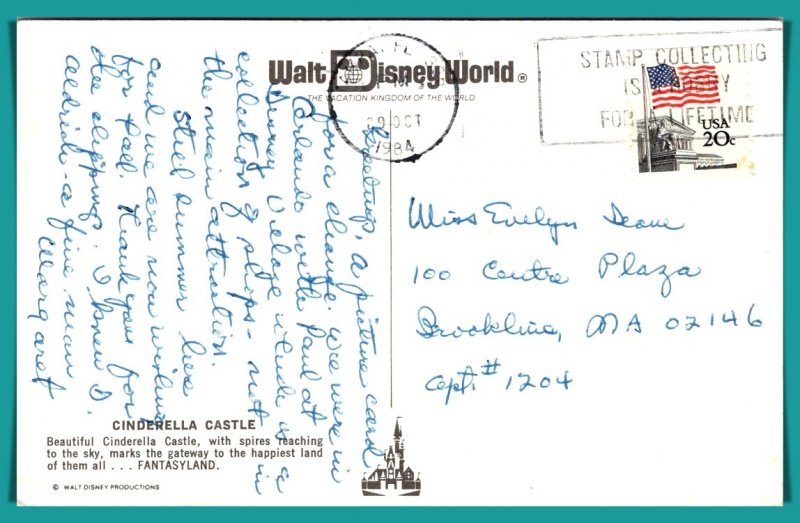 Walt Disney World®
THE VACATION KINGDOM OF THE WORLD
FL
29 OCT
1984
STAMP COLLECTING
IS A HOBBY
FOR A LIFETIME
USA
20c
Greetings, a picture card
for a change. We were in
Orlando with Paul at
Disney Village which is a
collection of shops - not in
the main attraction.
Still summer here
and we are now wishing
for fall. Thank you for
the clippings. I knew D.
Aldrich - a fine man
Margaret
Miss Evelyn Deane
100 Centre Plaza
Brookline, MA 02146
Apt. # 1204
CINDERELLA CASTLE
Beautiful Cinderella Castle, with spires reaching
to the sky, marks the gateway to the happiest land
of them all . . . FANTASYLAND.
© WALT DISNEY PRODUCTIONS